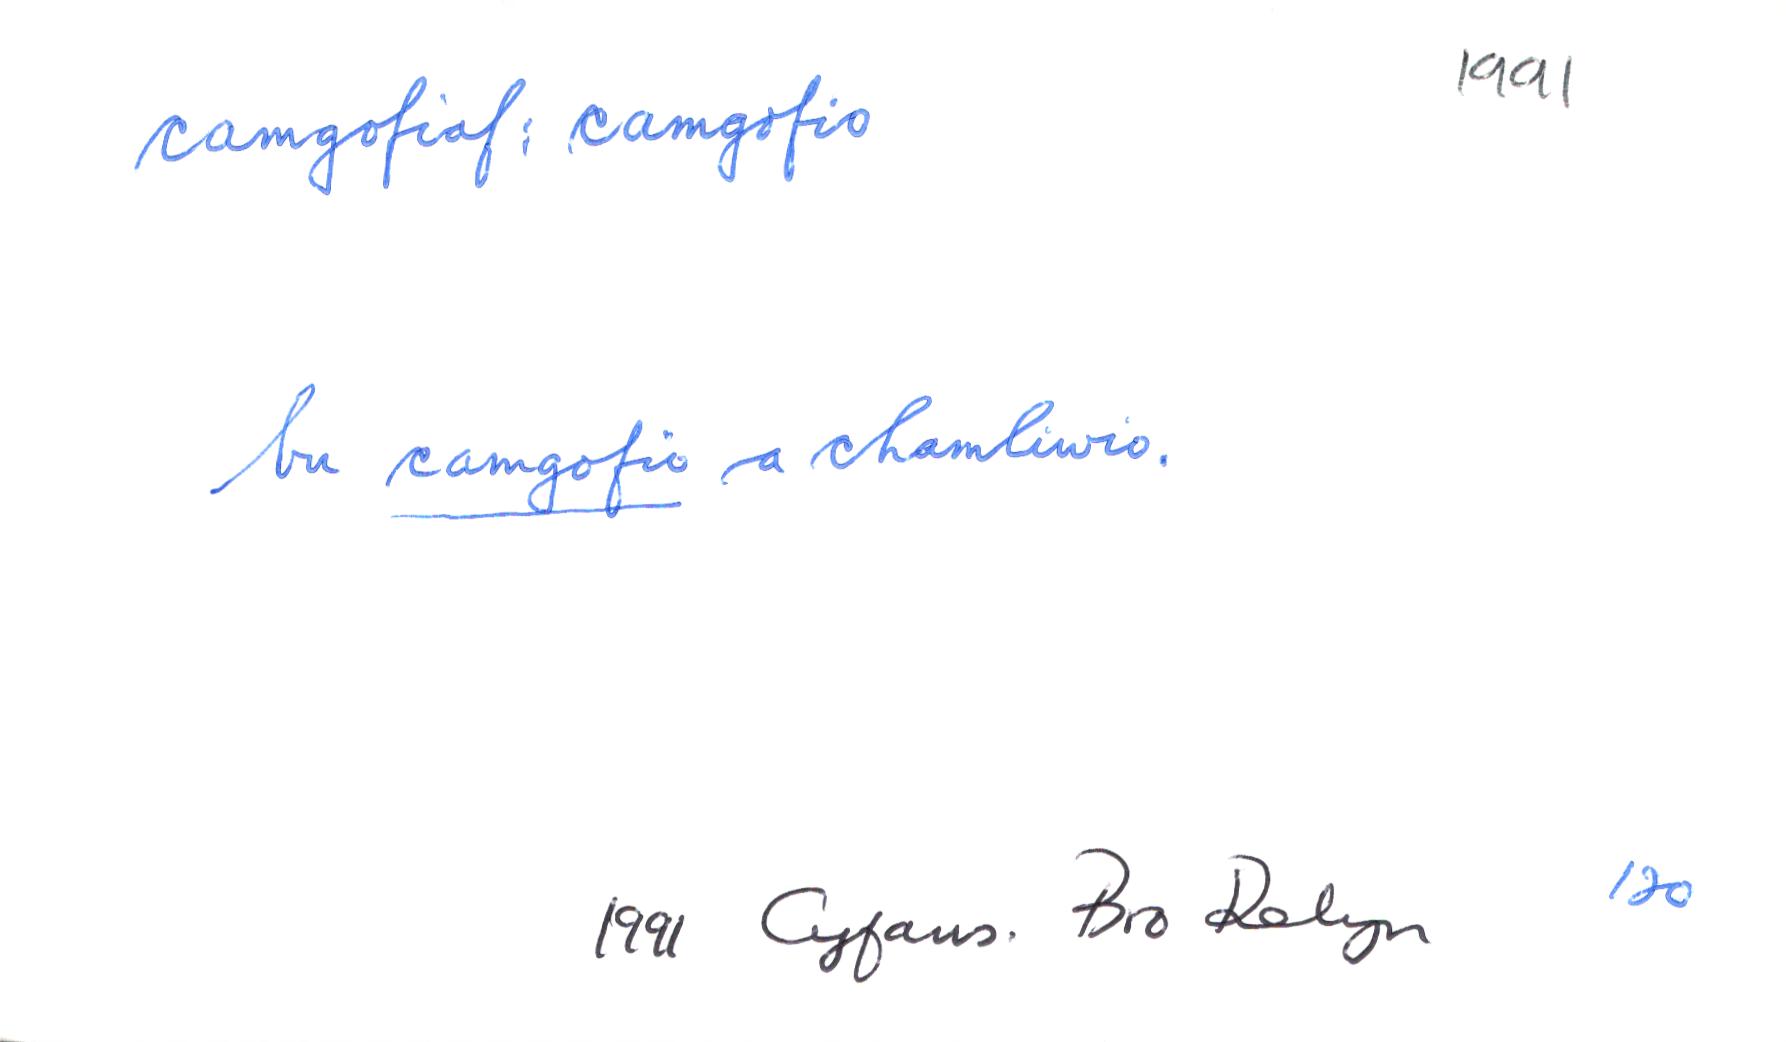 camgofiaf: camgofio 1991
bu camgofio a chamliwio.
1991 Cyfans. Bro Delyn 120